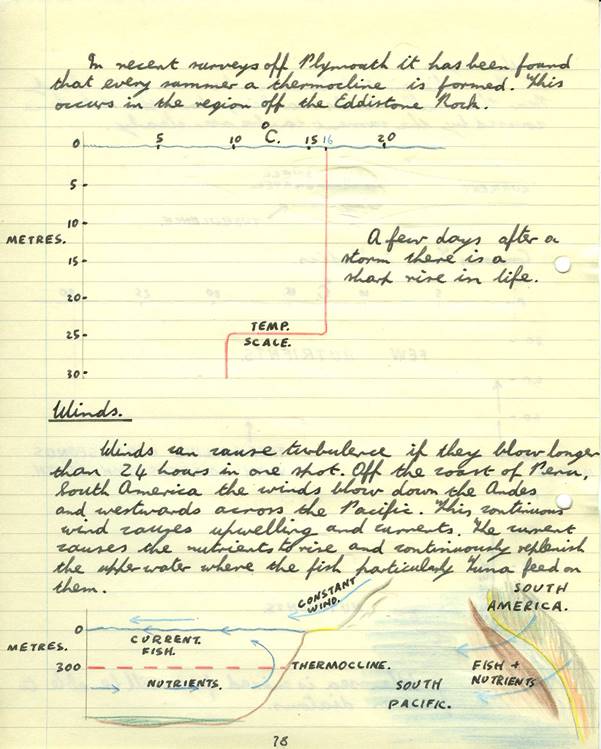 In recent surveys off Plymouth it has been found
that every summer a thermocline is formed. This
occurs in the region off the Eddistone Rock.
°C.
5 10 15 16 20
0
5
10
METRES.
15
20
25
30
A few days after a
storm there is a
sharp rise in life.
TEMP.
SCALE.
Winds.
Winds can cause turbulence if they blow longer
than 24 hours in one spot. Off the coast of Peru,
South America the winds blow down the Andes
and westwards across the Pacific. This continuous
wind causes upwelling and currents. The current
causes the nutrients to rise and continuously replenish
the upper water where the fish particularly Tuna feed on
them.
CONSTANT
WIND.
SOUTH
AMERICA.
0
METRES.
300
CURRENT.
FISH.
THERMOCLINE.
NUTRIENTS.
FISH +
NUTRIENTS
SOUTH
PACIFIC.
78